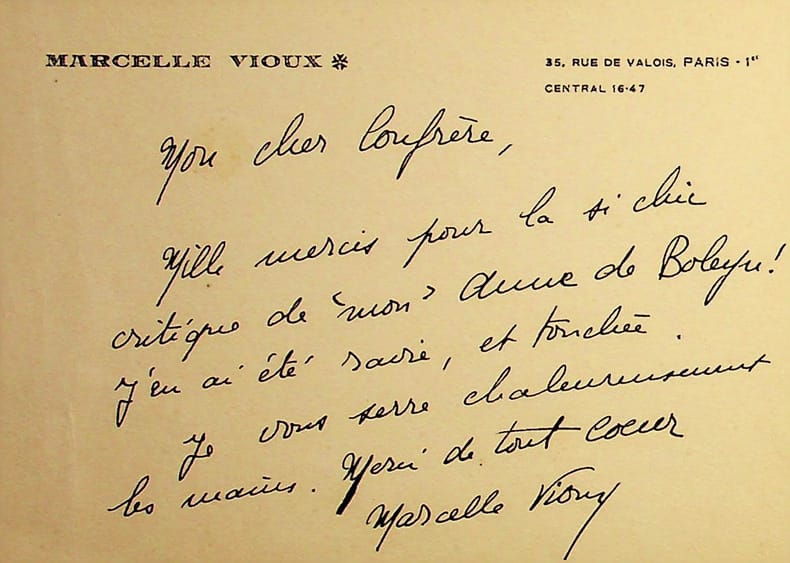 MARCELLE VIOUX
35, RUE DE VALOIS, PARIS - 1er
CENTRAL 16-47
Mon cher Confrère,
Mille mercis pour la si chic
critique de "mon" Anne de Boleyn!
J'en ai été ravie, et touchée.
Je vous serre chaleureusement
les mains. Merci de tout coeur
Marcelle Vioux